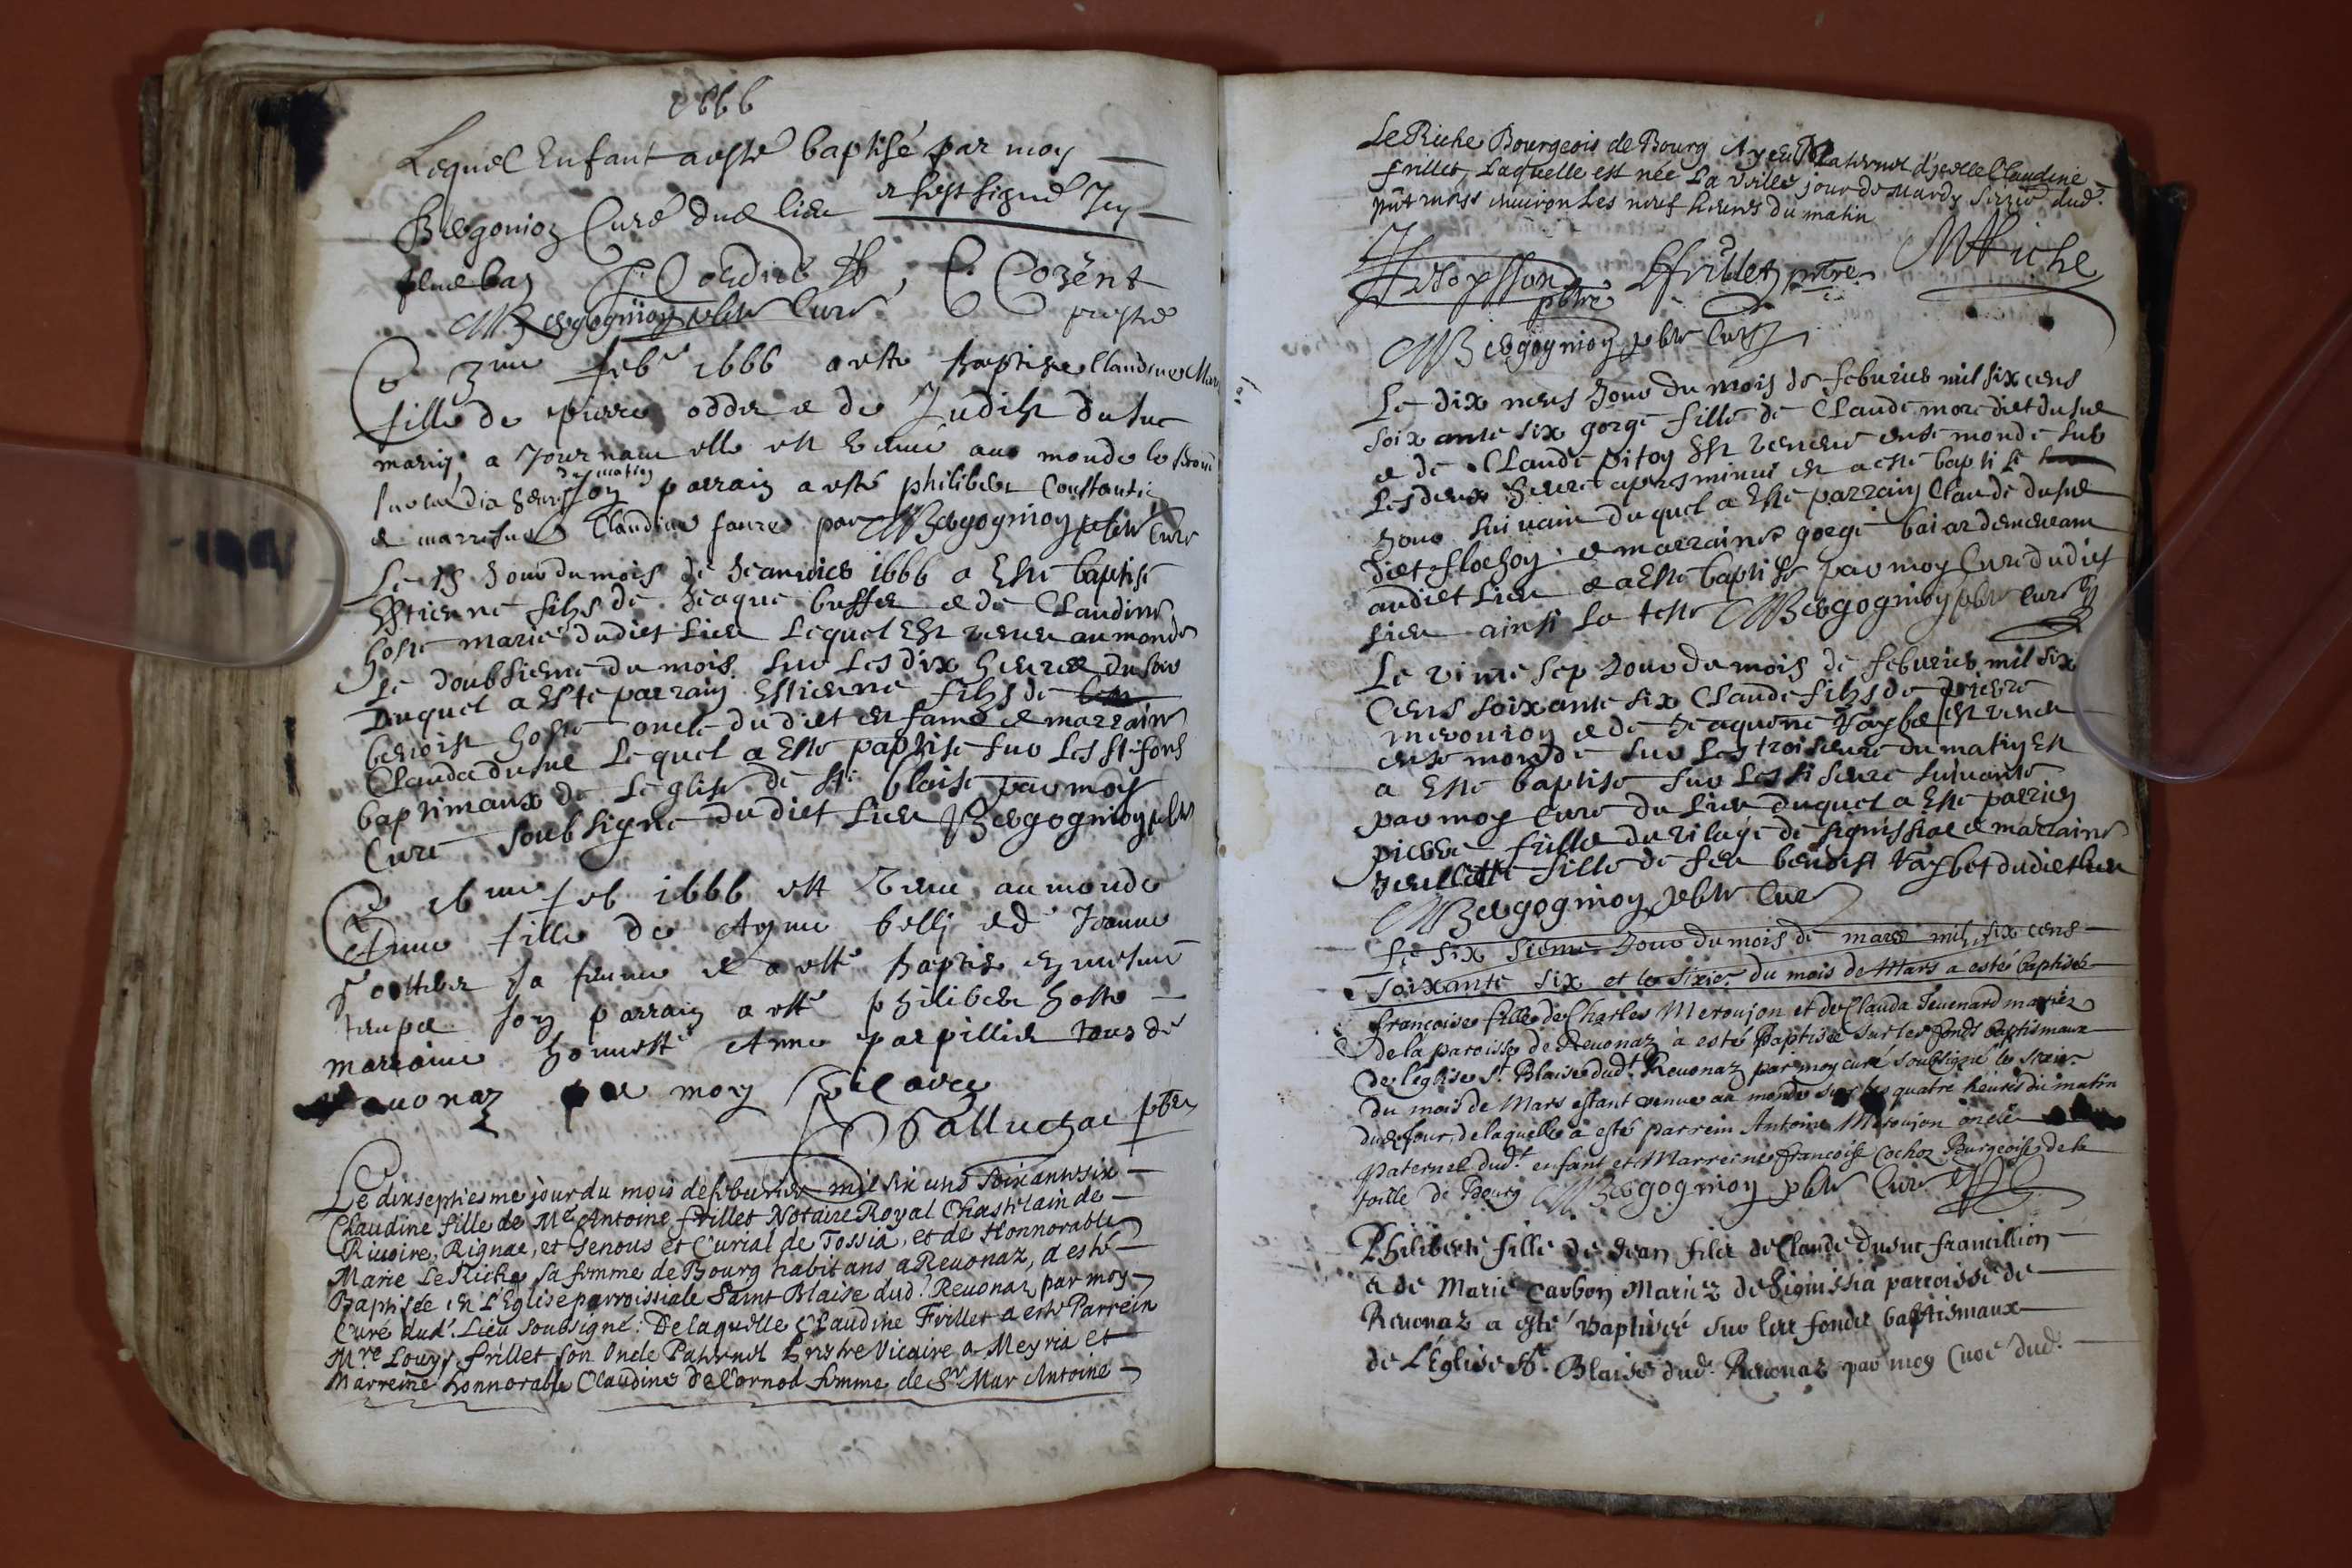 1666
Lequel Enfant a esté baptisé par moy
Bergonioz Curé dud lieu
C Cozént
prestre
MBergognioy pbre Curé
Ce 3me feb 1666 a este baptisee Claudine Mar
fille de pierre odder e de Judih dusuc
mariez a Journam elle est venue au monde le
du matin
parrain a esté philiber Constantin
e marrine Claudine faure par MBergognioy pbre Cure
Le 13 Jour du mois de Jeanvier 1666 a Esté baptisé
Estienne filz de Jeaque buffer e de Claudine
hoste mariés dudict Lieu Lequel Est venu au monde
Le doubsieme du mois sur Les dix heures du soir
Duquel a Esté parrain Estienne filz de
benoist hoste oncle dudict enfant e marraine
Clauda dusuc Lequel a Esté baptisé sur Les st fons
baptimaux de Leglise de st blaise par moy
Curé soubsigné dudict Lieu Bergognioy pbre
Ce 16me feb 1666 est venue au monde
Anne fille de Ayme belly e de Jeanne
sa femme e a esté baptisé en mesme
temps son parrain a esté philiber hoste
marraine honneste Anne parpillier tous de
Revonaz par moy
Palluchat pbre
Le dixseptiesme jour du mois de feburier mil six cens soixante six
Claudine fille de Me Antoine frillet Notaire Royal Chastelain de
Riuoire, Rignat, et senous et Curial de Tossia, et de Honnorable
Marie Le Riche sa femme de Bourg habitans a Reuonaz, a esté
Baptisée en L'Eglise parroissiale Saint Blaise dud.t Reuonaz par moy
Curé dud.t Lieu soubsigné: De laquelle Claudine Frillet a esté Parrein
Mre Louys frillet son Oncle Paternel Prestre Vicaire a Meyria et
Marreine honnorable Claudine De Cornod femme de Sr Mar Antoine
Le Riche Bourgeois de Bourg Ayeul Maternel d'jcelle Claudine
frillet, Laquelle est née La veille jour de Mardy sizie dud.t
pnt moys enuiron Les neuf heures du matin
pbre Lfrillet ptre MRiche
MBergognioy pbre Curé
Le dix neuf Jour du mois de feburier mil six cens
soixante six gorge fille de Claude more dict dusuc
e de Claude pitoy Est venue en se monde sur
Les deux heures apres minuit et a esté baptisé
Jour suivant duquel a Esté parrain Claude dusuc
dict flochoy e marraine gorge baiard demeurant
audict Lieu e a Esté baptisé par moy Curé dudict
Lieu ainsi La teste MBergognioy pbre Curé
Le vint e sep Jour du mois de feburier mil six
Cens soixante six Claude filz de pierre
meroujon e de Jeaquene Vaybe est venu
en se monde sur Les trois heures du matin Est
a Esté baptisé sur Les si heures suivante
par moy Curé du Lieu duquel a Esté parrien
pierre frille du vilage de signissiae e marraine
Jeullette fille de feu benoist Vaybet dudict lieu
MBergognioy pbre Curé
Le six sieme Jour du mois de mars mil six cens
soixante six et le sixie. du mois de Mars a esté baptisée
francoise fille de Charles Meroujon et de Clauda Jeuenard mariez
de la paroisse de Reuonaz à esté Baptisée sur les fonds baptismaux
de l'eglise St. Blaise dud.t Reuonaz par moy curé soubsigné le sixie.
du mois de Mars estant venue au monde sur les quatre heures du matin
dud jour, de laquelle a esté parrein Antoine Meroujon oncle
paternel dud.t enfant et Marreine francoise Cochoz Burgeoise de la
ville de Bourg MBergognioy pbre Curé
Philiberte fille de Jean filz de Claude Dusuc francillion
e de Marie Carbon Mariez de Signissia parroisse de
Reuonaz a esté Baptisée sur les fonds baptismaux
de L'Église St. Blaise dud. Reuonaz par moy Curé dud.